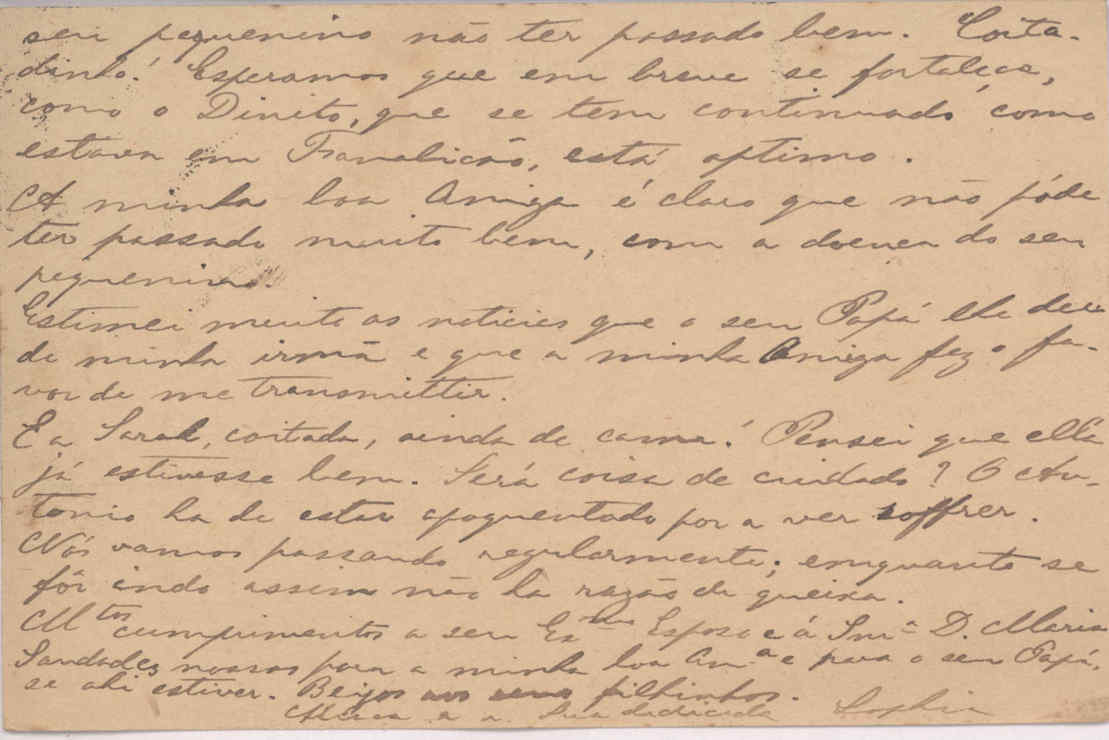 seu pequenino não ter passado bem. Coita-
dinho! Esperamos que em breve se fortaleça,
como o Dinito, que se tem continuado como
estava em Famalicão, está optimo.
A minha boa Amiga é claro que não póde
ter passado muito bem, com a doença do seu
pequenino.
Estimei muito as noticias que o seu Papá lhe deu
de minha irmã e que a minha Amiga fez o fa-
vor de me transmittir.
E a Sarah, coitada, ainda de cama! Pensei que ella
já estivesse bem. Será coisa de cuidado? O An-
tonio ha de estar apoquentado por a ver soffrer.
Nós vamos passando regularmente; emquanto se
fôr indo assim não ha razão de queixa.
Mtos cumprimentos a seu Exmo Esposo e á Snra D. Maria
Saudades nossas para a minha boa Ama e para o seu Papá,
se ahi estiver. Beijos aos seus filhinhos.
Sua dedicada Sophia